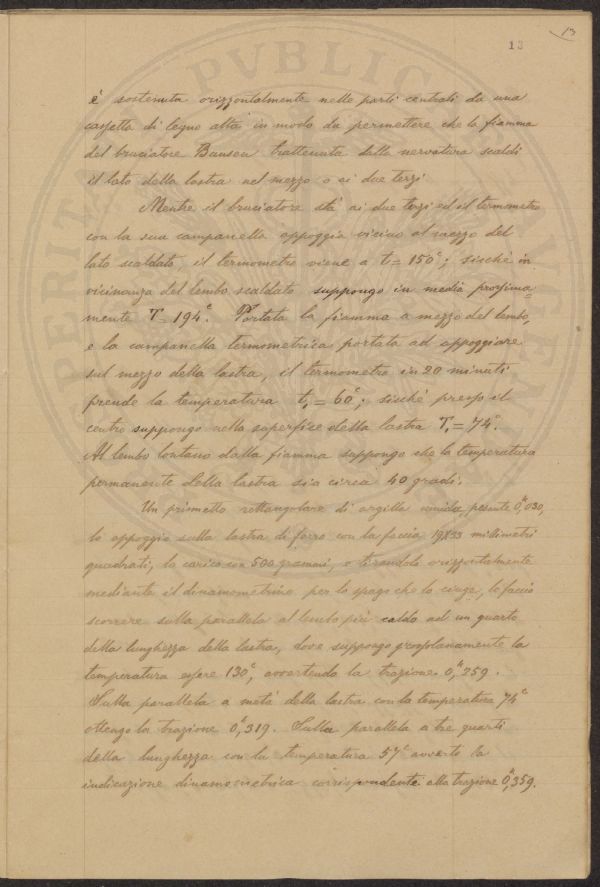 13
13
è sostenuta orizzontalmente nelle parti centrali da una
cassetta di legno alta in modo da permettere che la fiamma
del bruciatore Bunsen trattenuta dalla nervatura scaldi
il lato della lastra nel mezzo o ai due terzi.
Mentre il bruciatore sta ai due terzi ed il termometro
con la sua campanella appoggia vicino al mezzo del
lato scaldato, il termometro viene a t = 150°; sischè in
vicinanza del lembo scaldato suppongo in media prossima=
mente T = 194°. Portata la fiamma a mezzo del lembo,
e la campanella termometrica portata ad appoggiare
sul mezzo della lastra, il termometro in 20 minuti
prende la temperatura t₁ = 60°; sischè presso il
centro suppongo nella superfice della lastra T₁ = 74°.
Al lembo lontano dalla fiamma suppongo che la temperatura
permanente della lastra sia circa 40 gradi.
Un prismetto rettangolare di argilla umida pesante 0,030,
lo appoggio sulla lastra di ferro con la faccia millimetri
quadrati, lo carico con 500 grammi, e tirandolo orizzontalmente
mediante il dinamometrino per lo spago che lo cinge, lo faccio
scorrere sulla parallela al lembo più caldo ad un quarto
della lunghezza della lastra, dove suppongo la
temperatura essere 130°, avvertendo la trazione 0,259.
Sulla parallela a metà della lastra con la temperatura 74°
ottengo la trazione 0,319. Sulla parallela a tre quarti
della lunghezza con la temperatura 57° avverto la
indicazione dinamometrica corrispondente alla trazione 0,359.